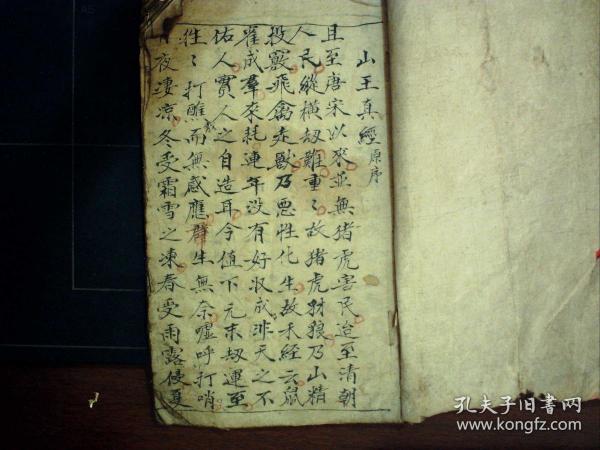 山王真經原序
且至唐宋以來並無猪虎害民迨至清朝
人民縱橫劫難重〻故猪虎豺狼乃山精
投竅飛禽走獸乃悪性化生故禾經云鼠
雀成羣來耗連年没有好收成非天之不
佑人實人之自造耳今值下元末劫運至
往〻打醮而無感應群生無奈嘘呼打哨
夜凄凉冬受霜雪之凍春受雨露侵夏
孔夫子旧书网
www.kongfz.com